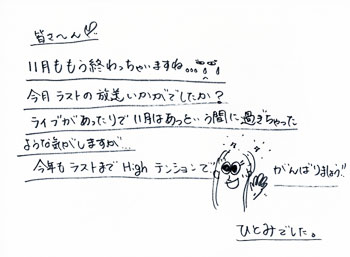 皆さへん♡
11月ももう終わっちゃいますね。。。
今月ラストの放送いかがでしたか?
ライブがあったりで11月はあっという間に過ぎちゃった
ような気がしますが…
今年もラストまでHighテンションで
がんばりましょう!!
ひとみでした。